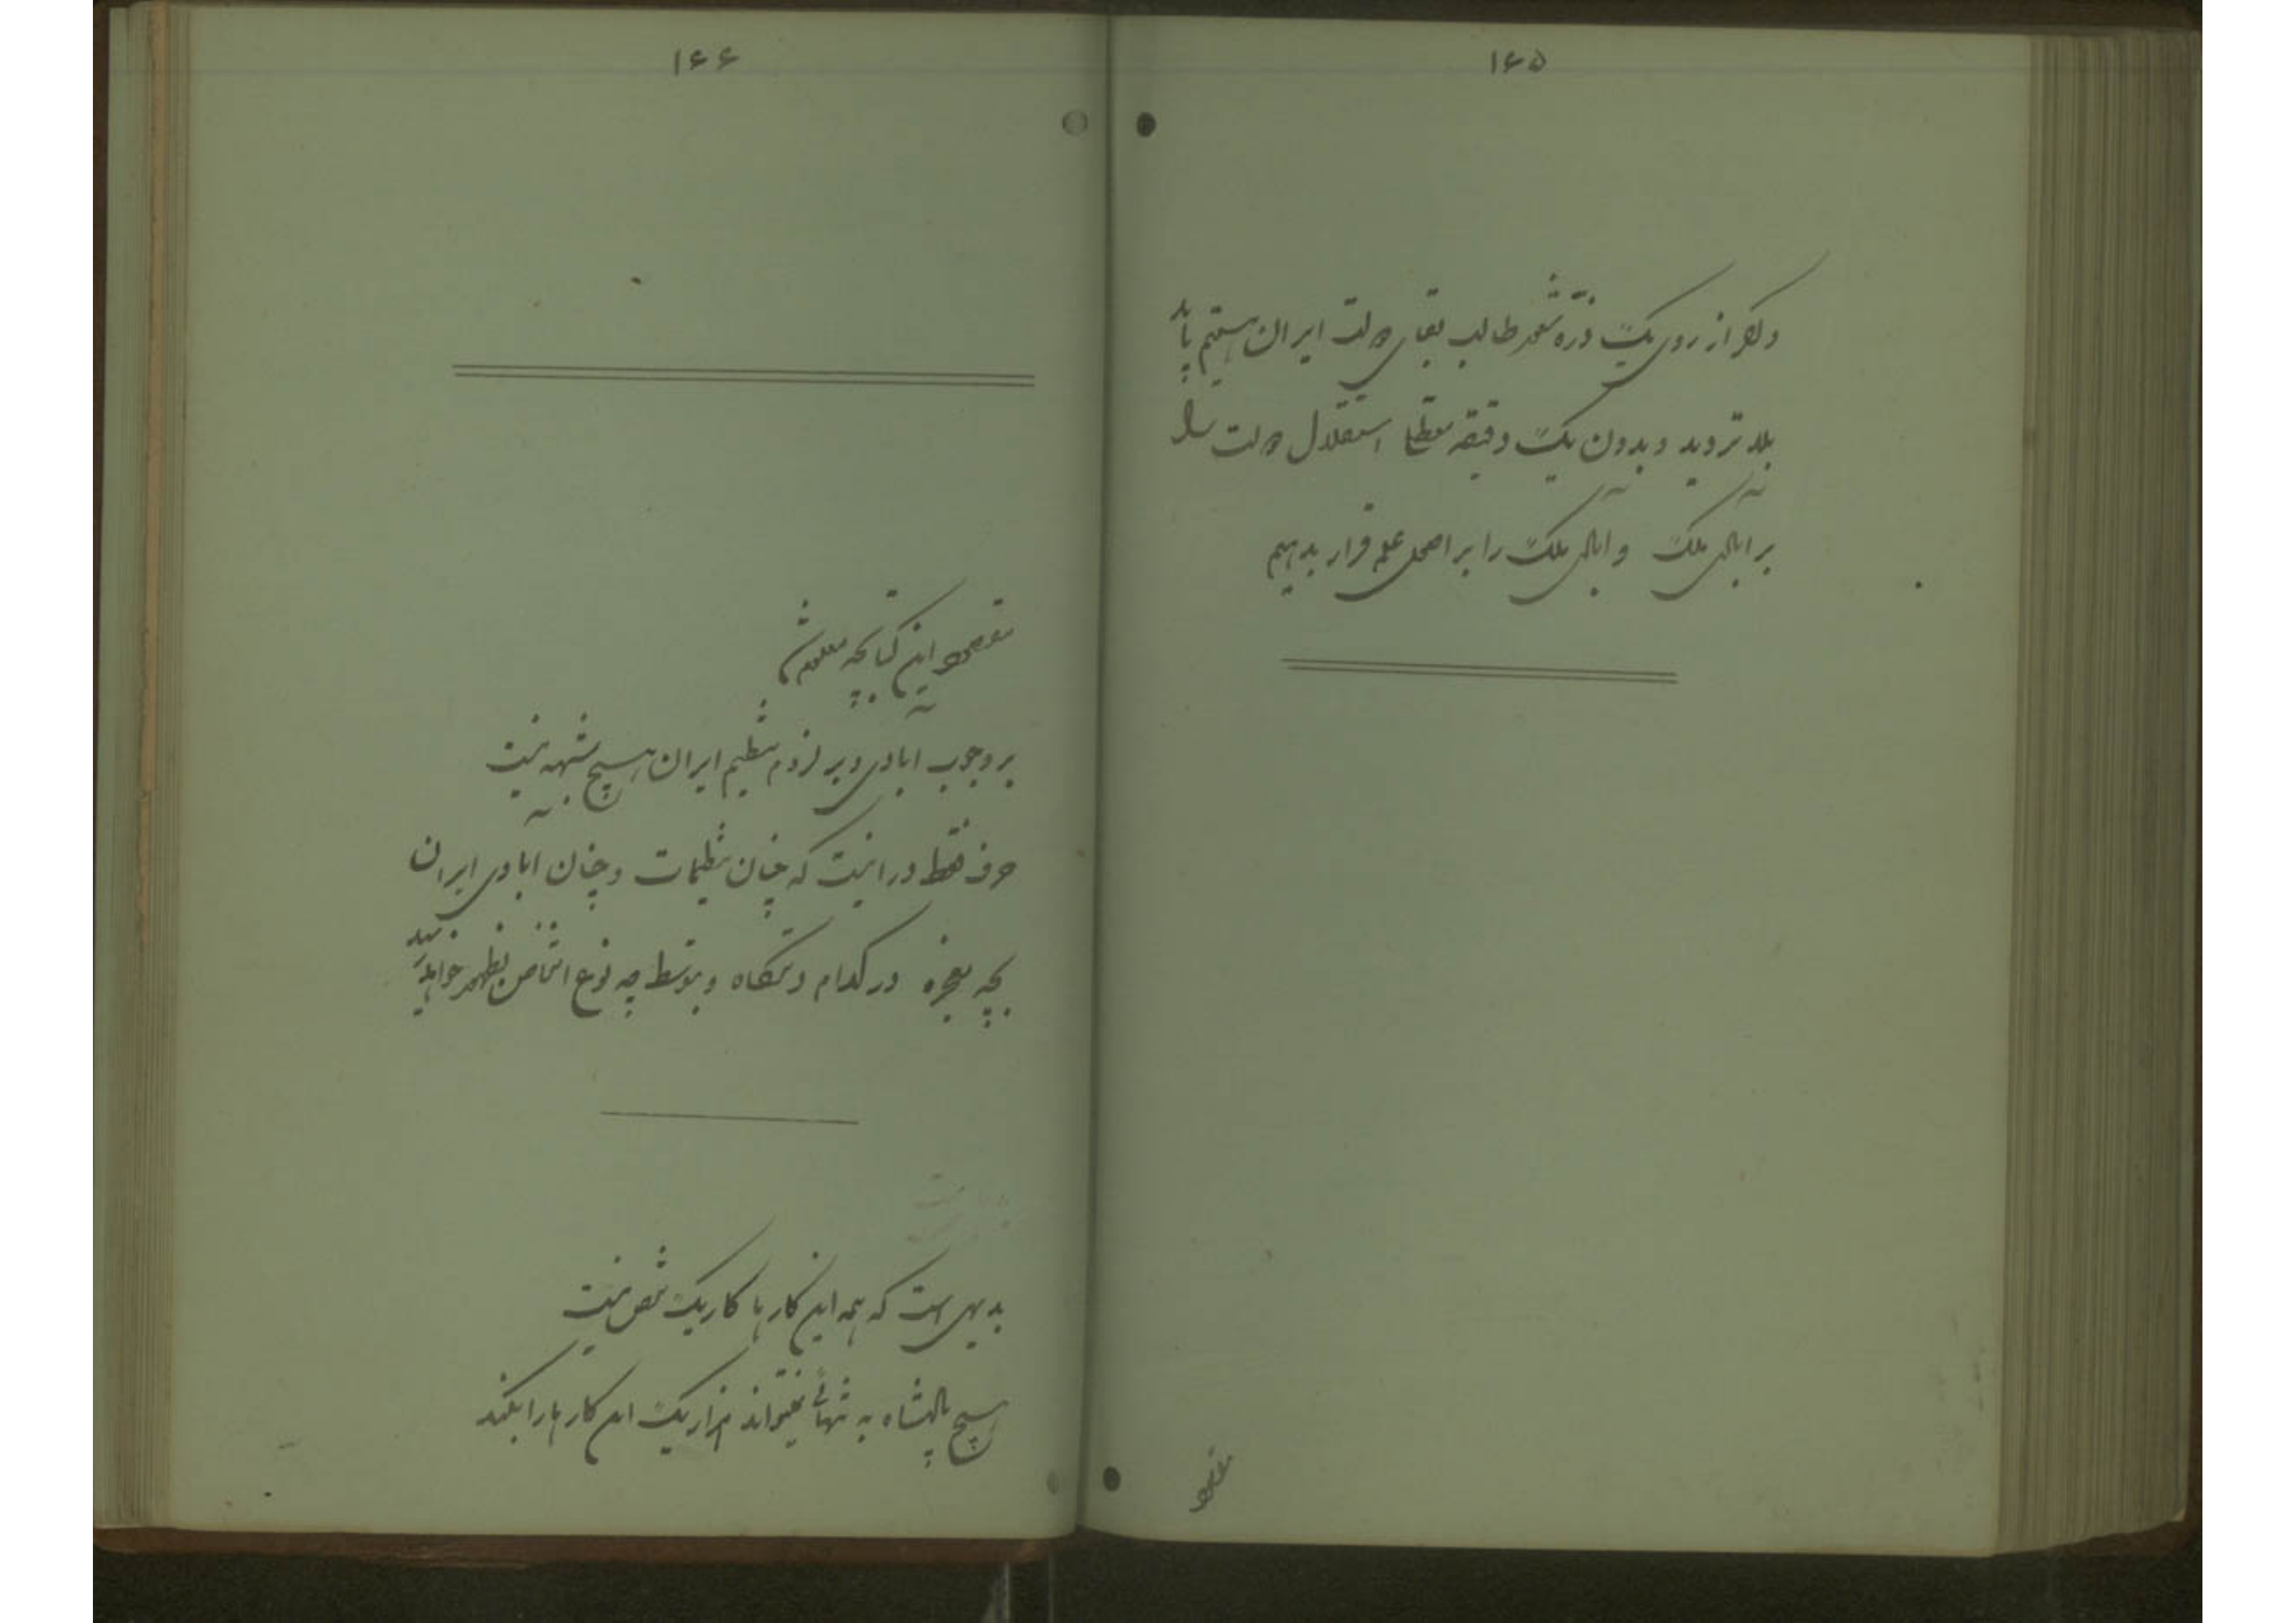 ۱۶۵
و اگر از روی یک ذره شعور طالب بقای دولت ایران هستیم باید
بلا تردید و بدون یک دقیقه معطلی استقلال دولت را
بر اهالی ملک و اهالی ملک را بر اصول علم قرار بدهیم
مقصود
۱۶۶
مقصود این کتابچه معلوم شد
بر وجوب آبادی و بر لزوم تنظیم ایران هیچ شبهه نیست
حرف فقط در اینست که چنان تنظیمات و چنان ابادی ایران
بچه معجزه در کدام دستگاه و بتوسط چه نوع اشخاص بظهور خواهد رسید
بدیهی است که همه این کارها کار یک شخص نیست
هیچ پادشاه به تنهائی نمیتواند هزار یک این کارها را بکند